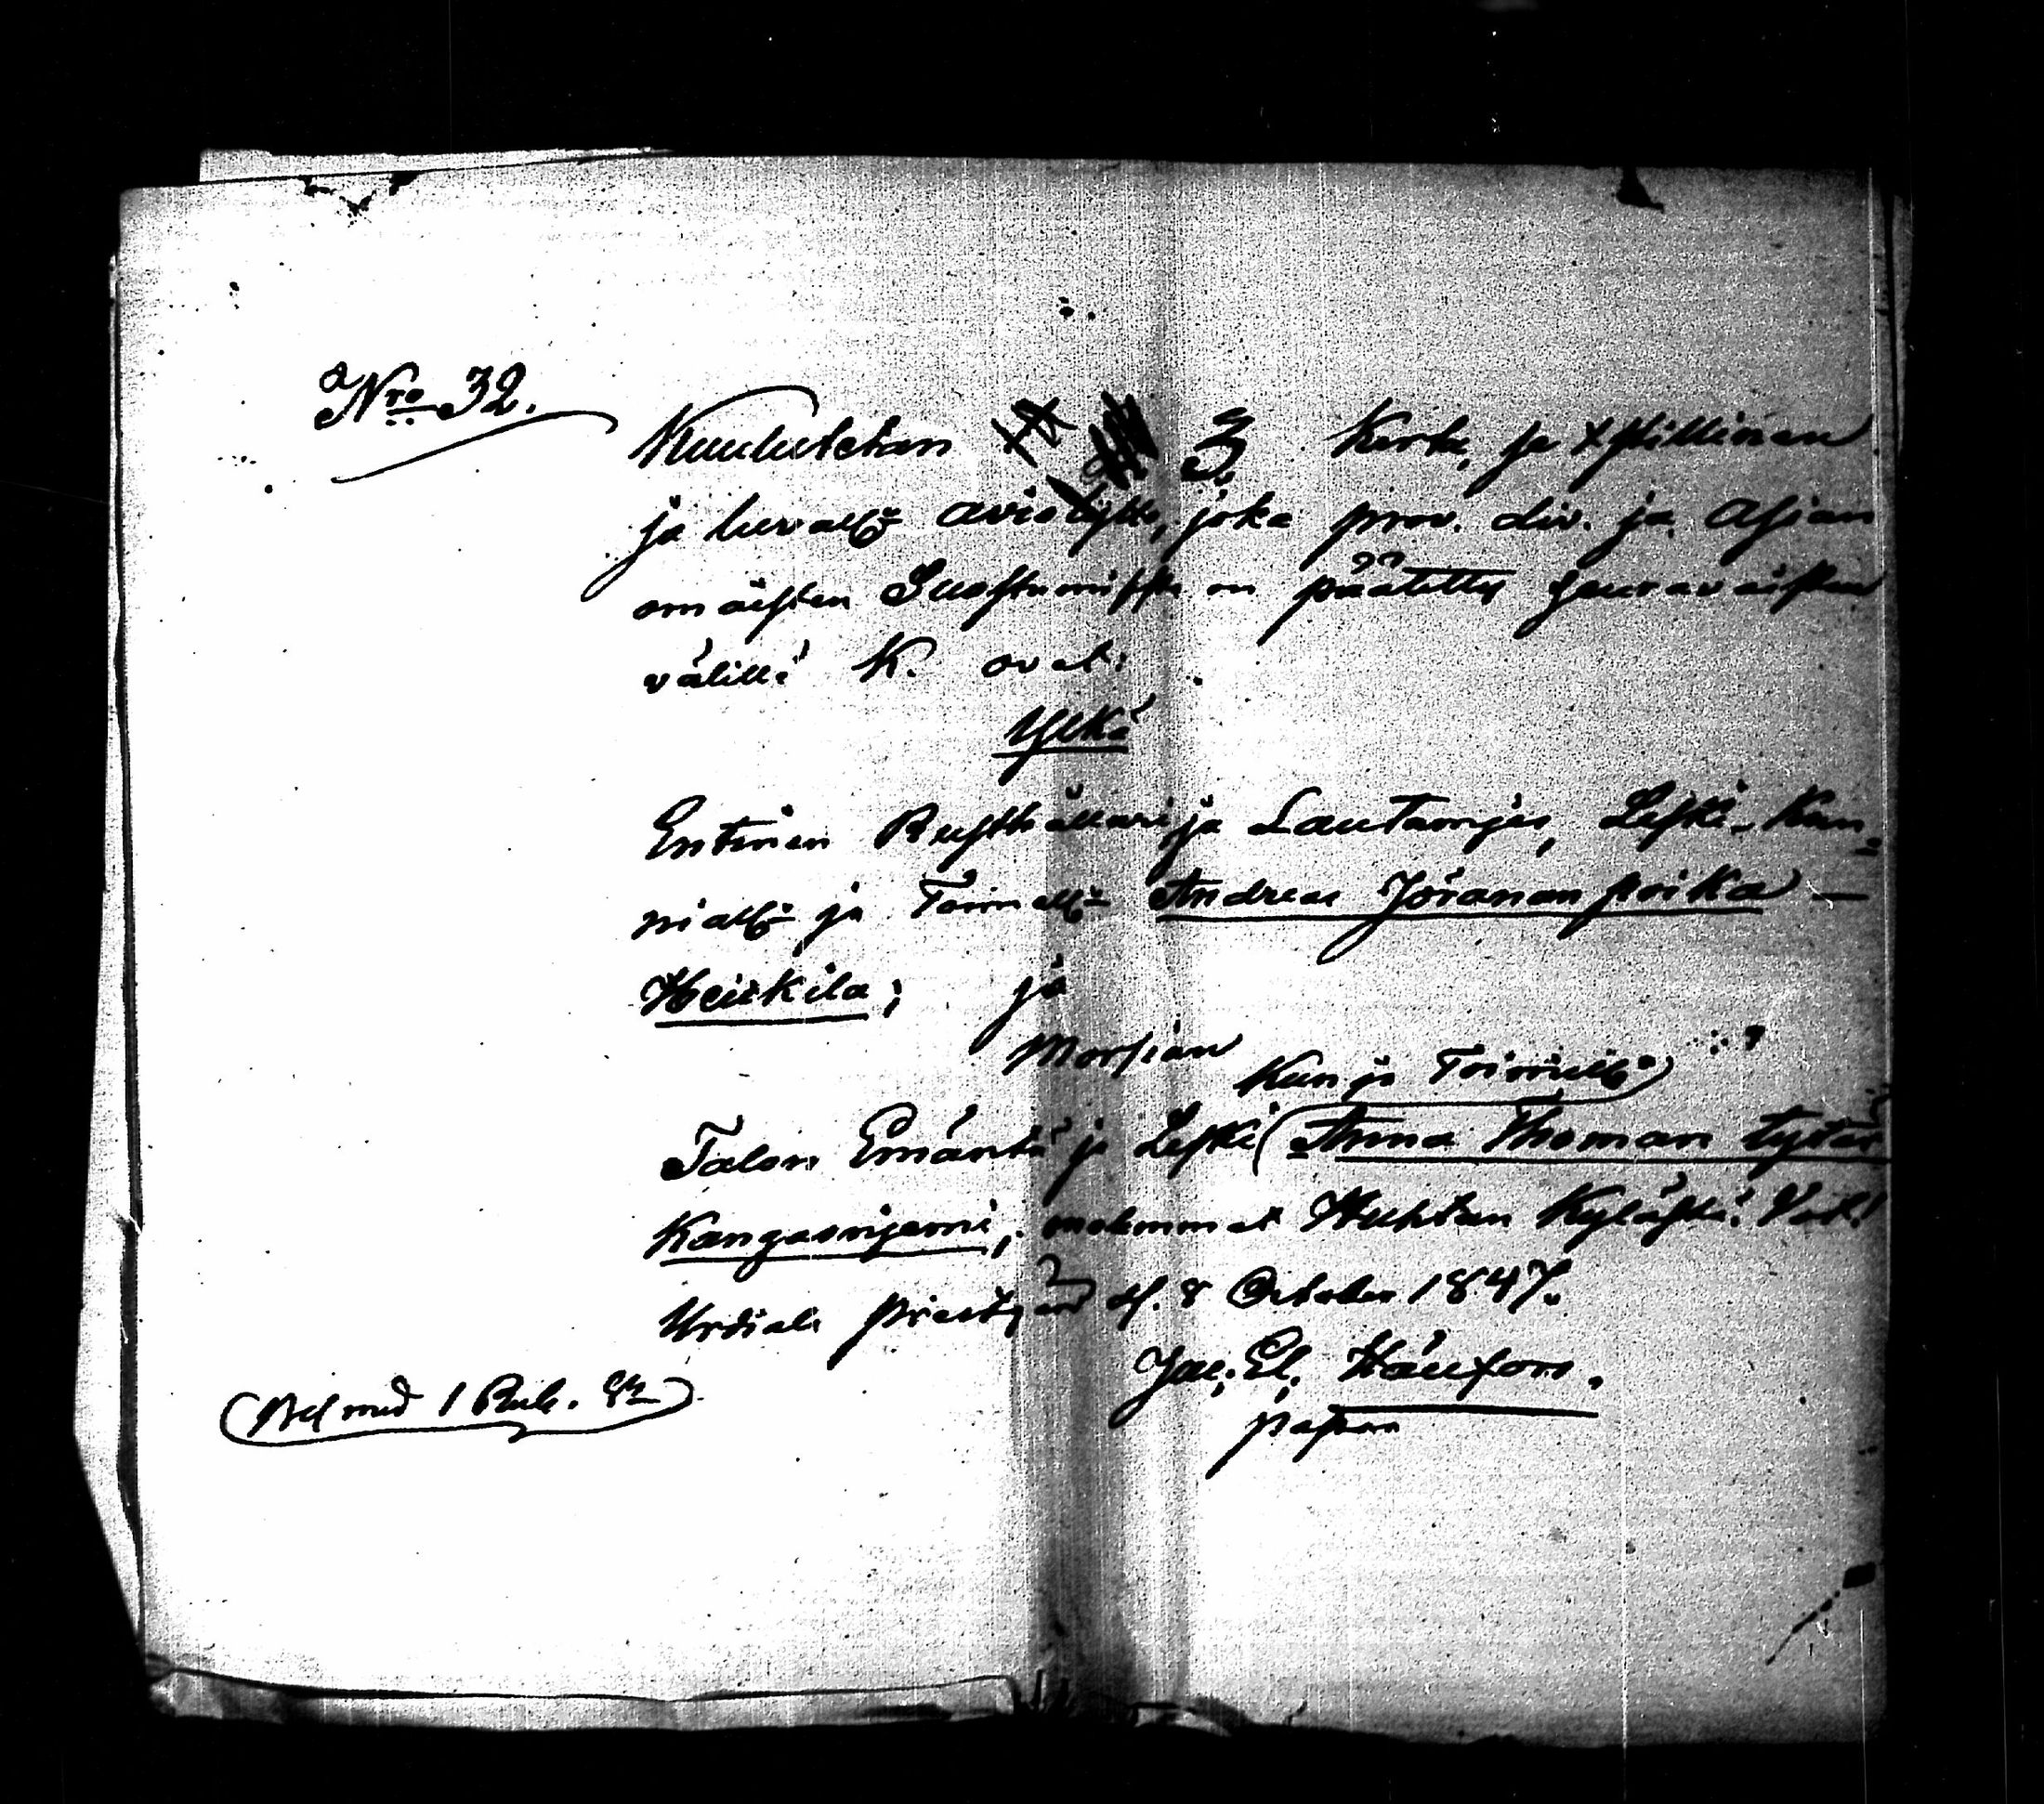 Nro 32.
Kuulutetan 3 Kerta, ja Xstillinen
ja luvall: avio joka prov. div. ja Asian
omaisten Suostumisesta on päätetty seuravaisten
välillä K. ovat:
Ylkä
Entinen Rusthållari ja Lautamjes, Leski, Kun-
niall: ja Toimell: Andreas Jöranan poika —
Heickila; ja
Morsian
Kun ja Toimell:
Talon Emäntä ja Leski Anna Thoman tytär
Kangasnjemi, molemmat Huhdan Kylästä.
Urdiala Prestgård d. 8 October 1847.
Jac. El.
pastor
1 Rub.